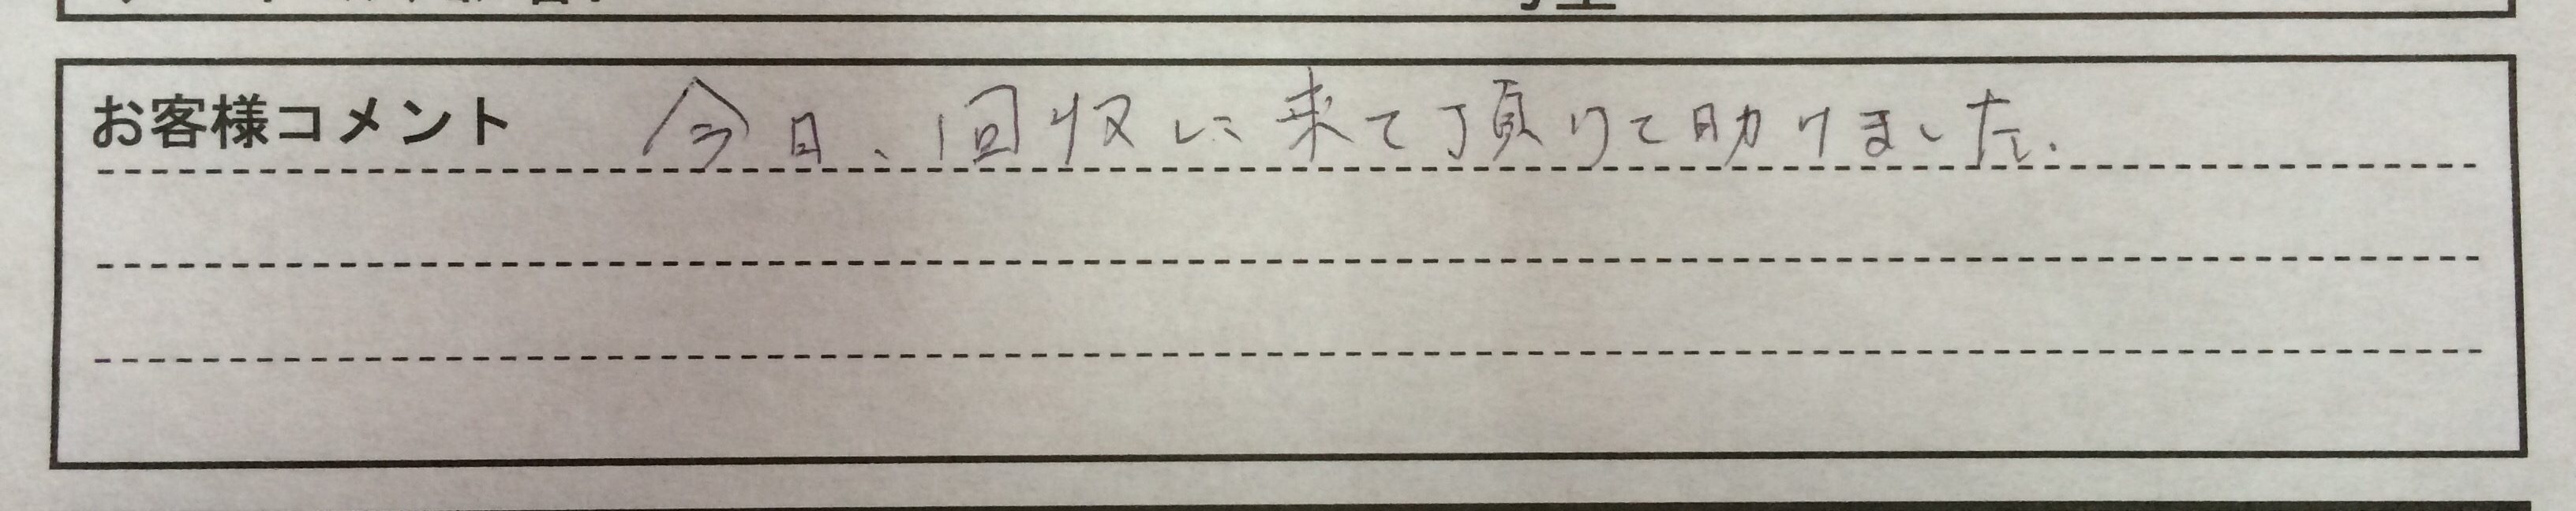 お客様コメント 今日、回収に来て頂けて助けました.